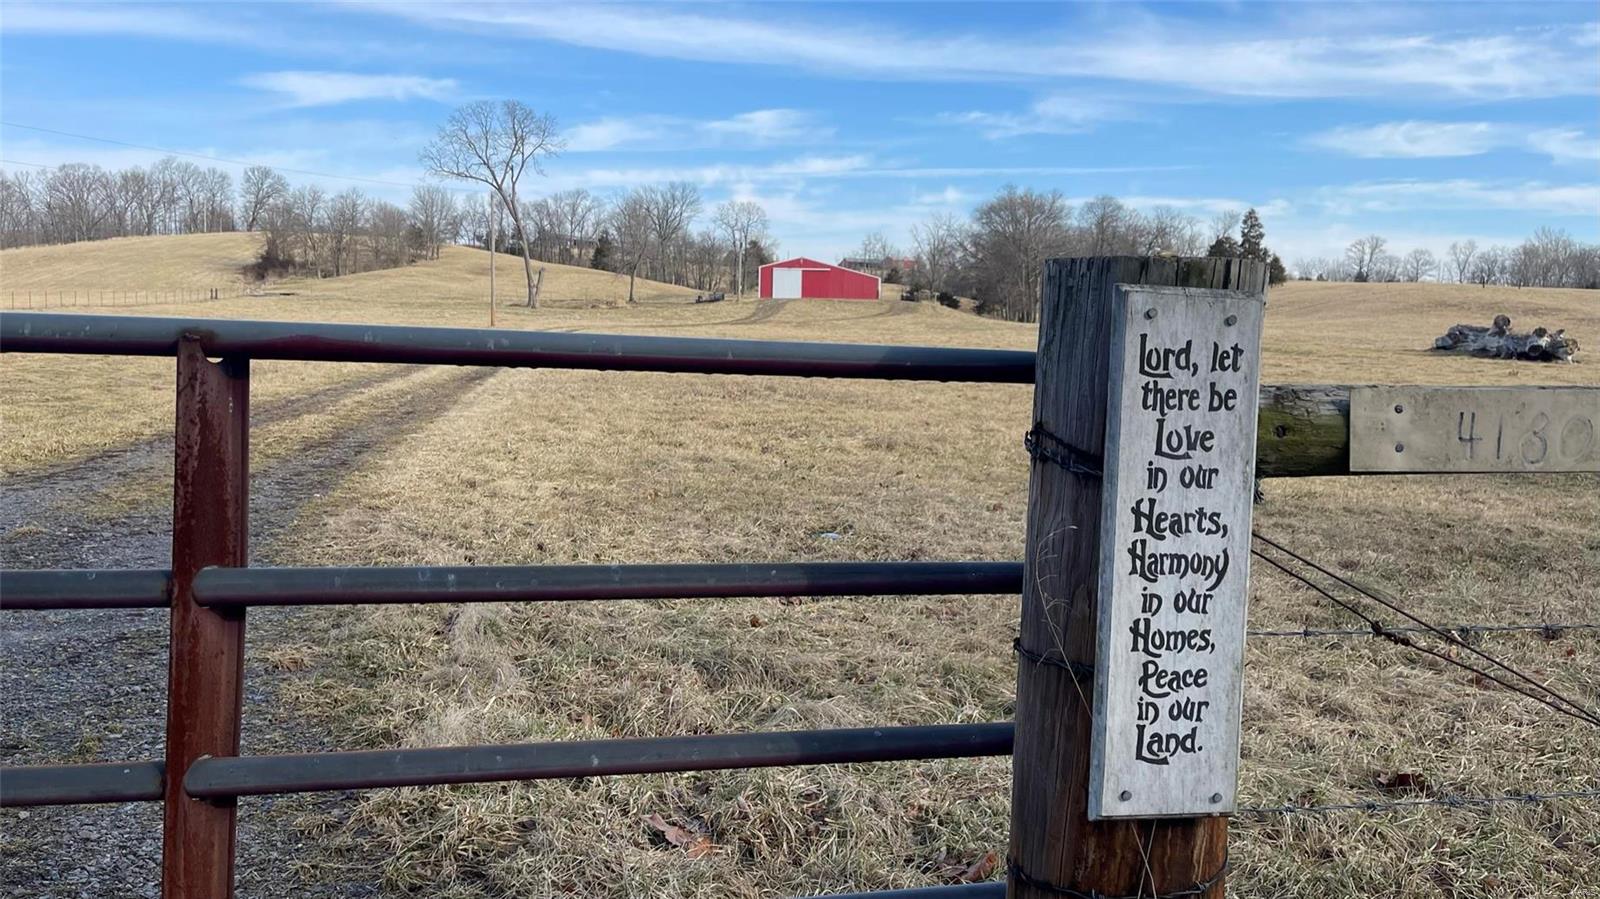 Lord, let
there be
Love
in our
Hearts,
Harmony
in our
Homes,
Peace
in our
Land.
4130